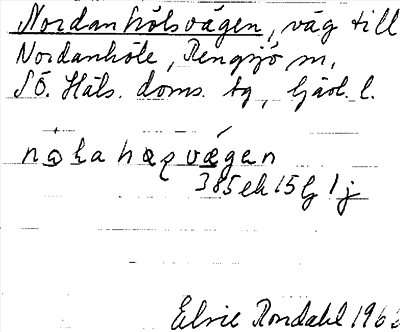 Nordanhölsvägen, väg till
Nordanhöle, Rengsjö sn,
SÖ. Häls. doms. tg, Gävl. l.
385 ek 15 G 1 j
Elsie Rondahl 1963